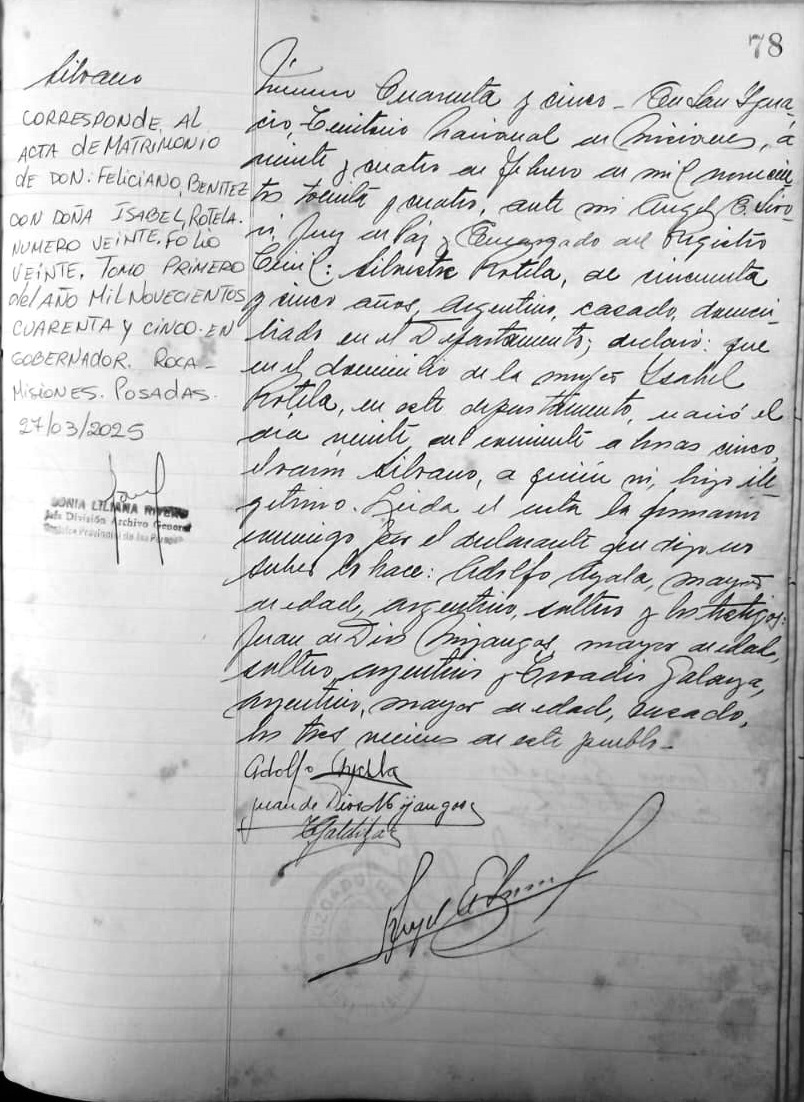 78
Silvano
CORRESPONDE AL
ACTA de MATRIMONIO
de DON: FELICIANO, BENITEZ
CON DOÑA ISABEL, ROTELA.
NUMERO VEINTE. FOLIO
VEINTE. TOMO PRIMERO
del AÑO MIL NOVECIENTOS
CUARENTA Y CINCO. EN
GOBERNADOR. ROCA -
MISIONES. POSADAS.
27/03/2025
SONIA LILIANA RIVERO
Jefa División Archivo General
Registro Provincial de las Personas
Número Cuarenta y cinco - En San Igna-
cio, Territorio Nacional de Misiones, a
veinte y cuatro de Febrero de mil novecien-
tos treinta y cuatro, ante mi Angel E.
Juez de Paz y Encargado del Registro
Civil: Silvestre Rotela, de cincuenta
y cinco años, argentino, casado, domici-
liado en el Departamento; declaró: que
en el domicilio de la mujer Isabel
Rotela, en este departamento, nació el
día veinte del corriente a horas cinco,
el varón Silvano, a quien vi, hijo ile-
gítimo. Leida el acta la firmaron
conmigo por el declarante que dijo no
saber lo hace: Adolfo Ayala, mayor
de edad, argentino, soltero y los testigos:
Juan de Dios Mijangos, mayor de edad,
soltero, argentino y Galarza,
argentino, mayor de edad, casado,
los tres vecinos de este pueblo -
Adolfo Ayala
Juan de Dios Mijangos
JUZGADO DE